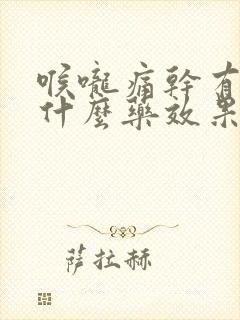 喉嚨痛幹有
什麼藥效果
薩拉赫